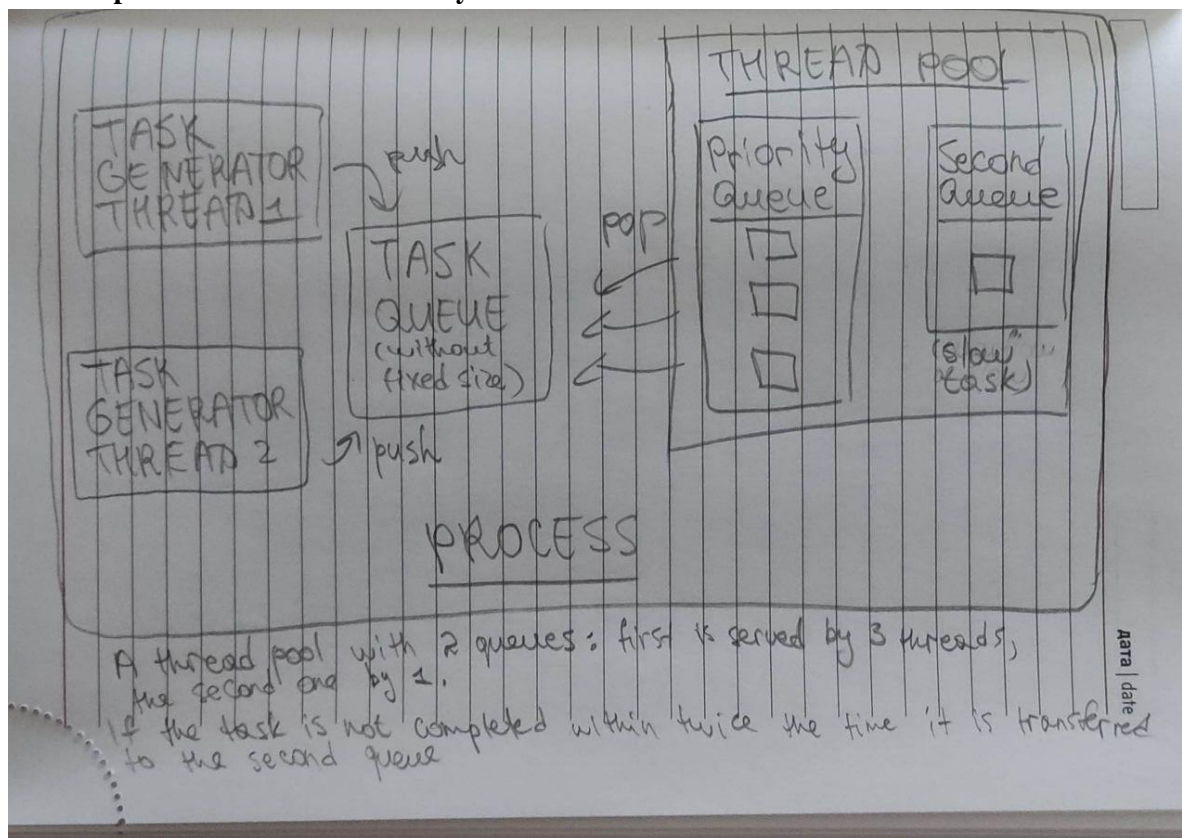 TASK
GENERATOR
THREAD 1
push
TASK
QUEUE
(without
fixed size)
TASK
GENERATOR
THREAD 2
push
pop
THREAD POOL
Priority
Queue
Second
Queue
("slow"
task)
PROCESS
A thread pool with 2 queues: first is served by 3 threads,
the second one by 1.
If the task is not completed within twice the time it is transferred
to the second queue
дата | date